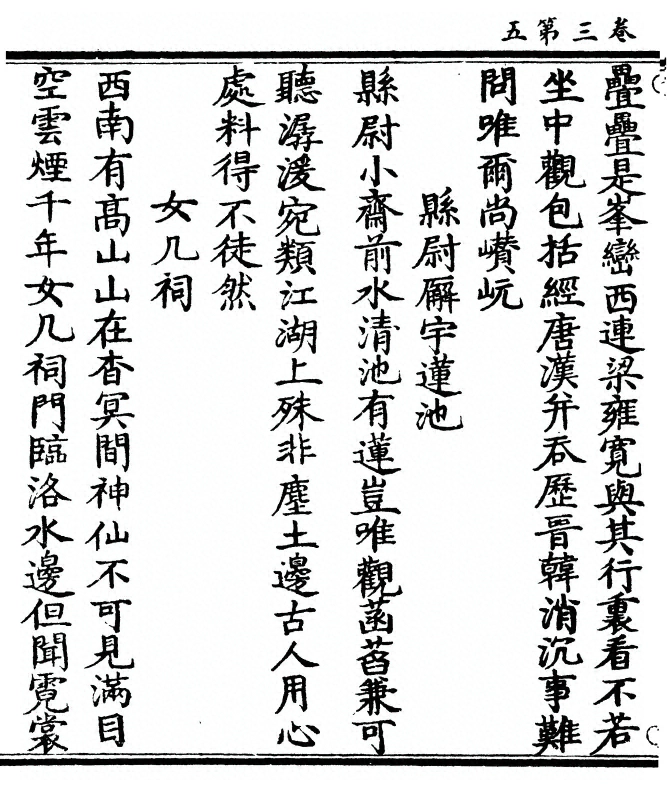 卷三第五
疊疊是峯巒西連梁雍寬與其行裏看不若
坐中觀包括經唐漢并吞歷晉韓消沉事難
問唯爾尚巑岏
縣尉廨宇蓮池
縣尉小齋前水清池有蓮豈唯觀菡萏兼可
聽潺湲宛類江湖上殊非塵土邊古人用心
處料得不徒然
女几祠
西南有高山山在杳冥間神仙不可見滿目
空雲煙千年女几祠門臨洛水邊但聞霓裳